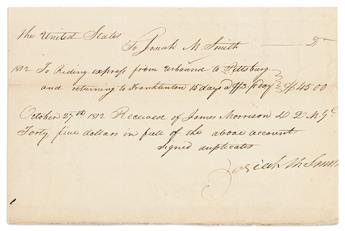 The United States
To Josiah M. Smith Dr
1812 To Riding express from Urbana to Pittsburg
and returning to Franklinton 15 days @ $3 p day $45.00
October 27th 1812 Received of James Morrison D. Q. M. Gl
Forty five dollars in full of the above account
Signed duplicates
Josiah M Smith